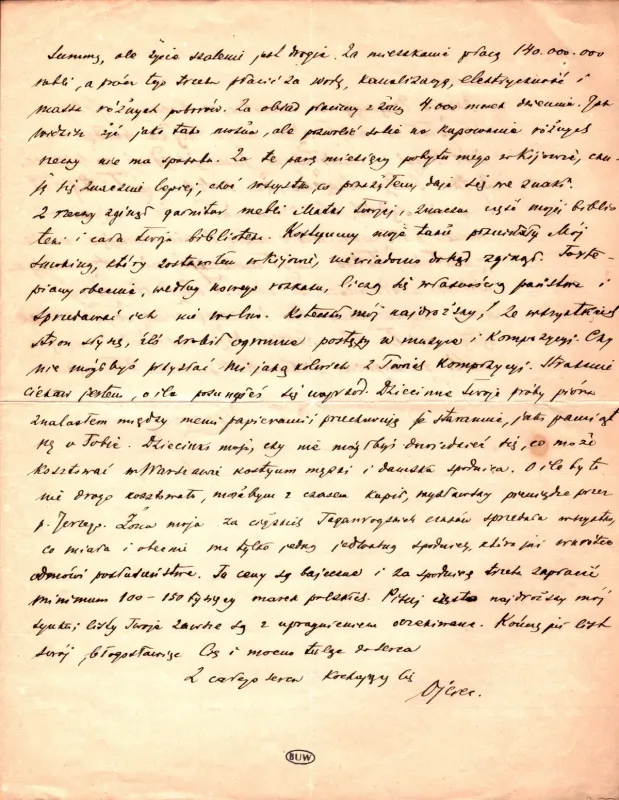 Summy, ale życie szalenie jest drogie. Za mieszkanie płacę 140.000.000
rubli, a prócz tego trzeba płacić za wodę, kanalizację, elektryczność i
masę różnych poborów. Za obiad płacimy z żoną 4.000 marek dziennie. Jak
widzisz żyć jako tako można, ale pozwolić sobie na kupowanie różnych
rzeczy nie ma sposobu. Za te parę miesięcy pobytu mego w Kijowie, czu-
ję się znacznie lepiej, choć wszystko, co przeżyłem daje się we znaki.
Z rzeczy zginął garnitur mebli Matki Twojej, znaczna część mojej biblio
teki i cała Twoja biblioteka. Kostjumy moje także przepadły Mój
smoking, który zostawiłem w Kijowie, niewiadomo dokąd zginął. Forte-
piany obecnie, według nowego rozkazu, liczą się własnością państwa i
sprzedawać ich nie wolno. Koteczku mój najdroższy! Ze wszystkich
stron słyszę, iż zrobił ogromne postępy w muzyce i kompozycji. Czy
nie mógłbyś przysłać mi jaką kolwiek z Twoich kompozycji. Strasznie
ciekaw jestem, o ile posunąłeś się naprzód. Dziecinne Twoje próby pióra
znalazłem między memi papierami i przechowuję je starannie, jako pamiąt
kę o Tobie. Dziecinko moja, czy nie mógłbyś dowiedzieć się, co może
kosztować w Warszawie kostjum męski i damska spódnica. O ile by to
nie drogo kosztowało, możebym z czasem kupił, wysławszy pieniądze przez
p. Jerzego. Żona moja za ciężkich Taganrogskich czasów sprzedała wszystko,
co miała i obecnie ma tylko jedną jedwabną spódnicę, która już wkrótce
odmówi posłuszeństwa. Tu ceny są bajeczne i za spódnicę trzeba zapłacić
minimum 100 – 150 tysięcy marek polskich. Pisuj często najdroższy mój
synku, listy Twoje zawsze są z upragnieniem oczekiwane. Kończę już list
swój, błogosławię Cię i mocno tulę do serca
Z całego serca kochający Cię
Ojciec.
BUW